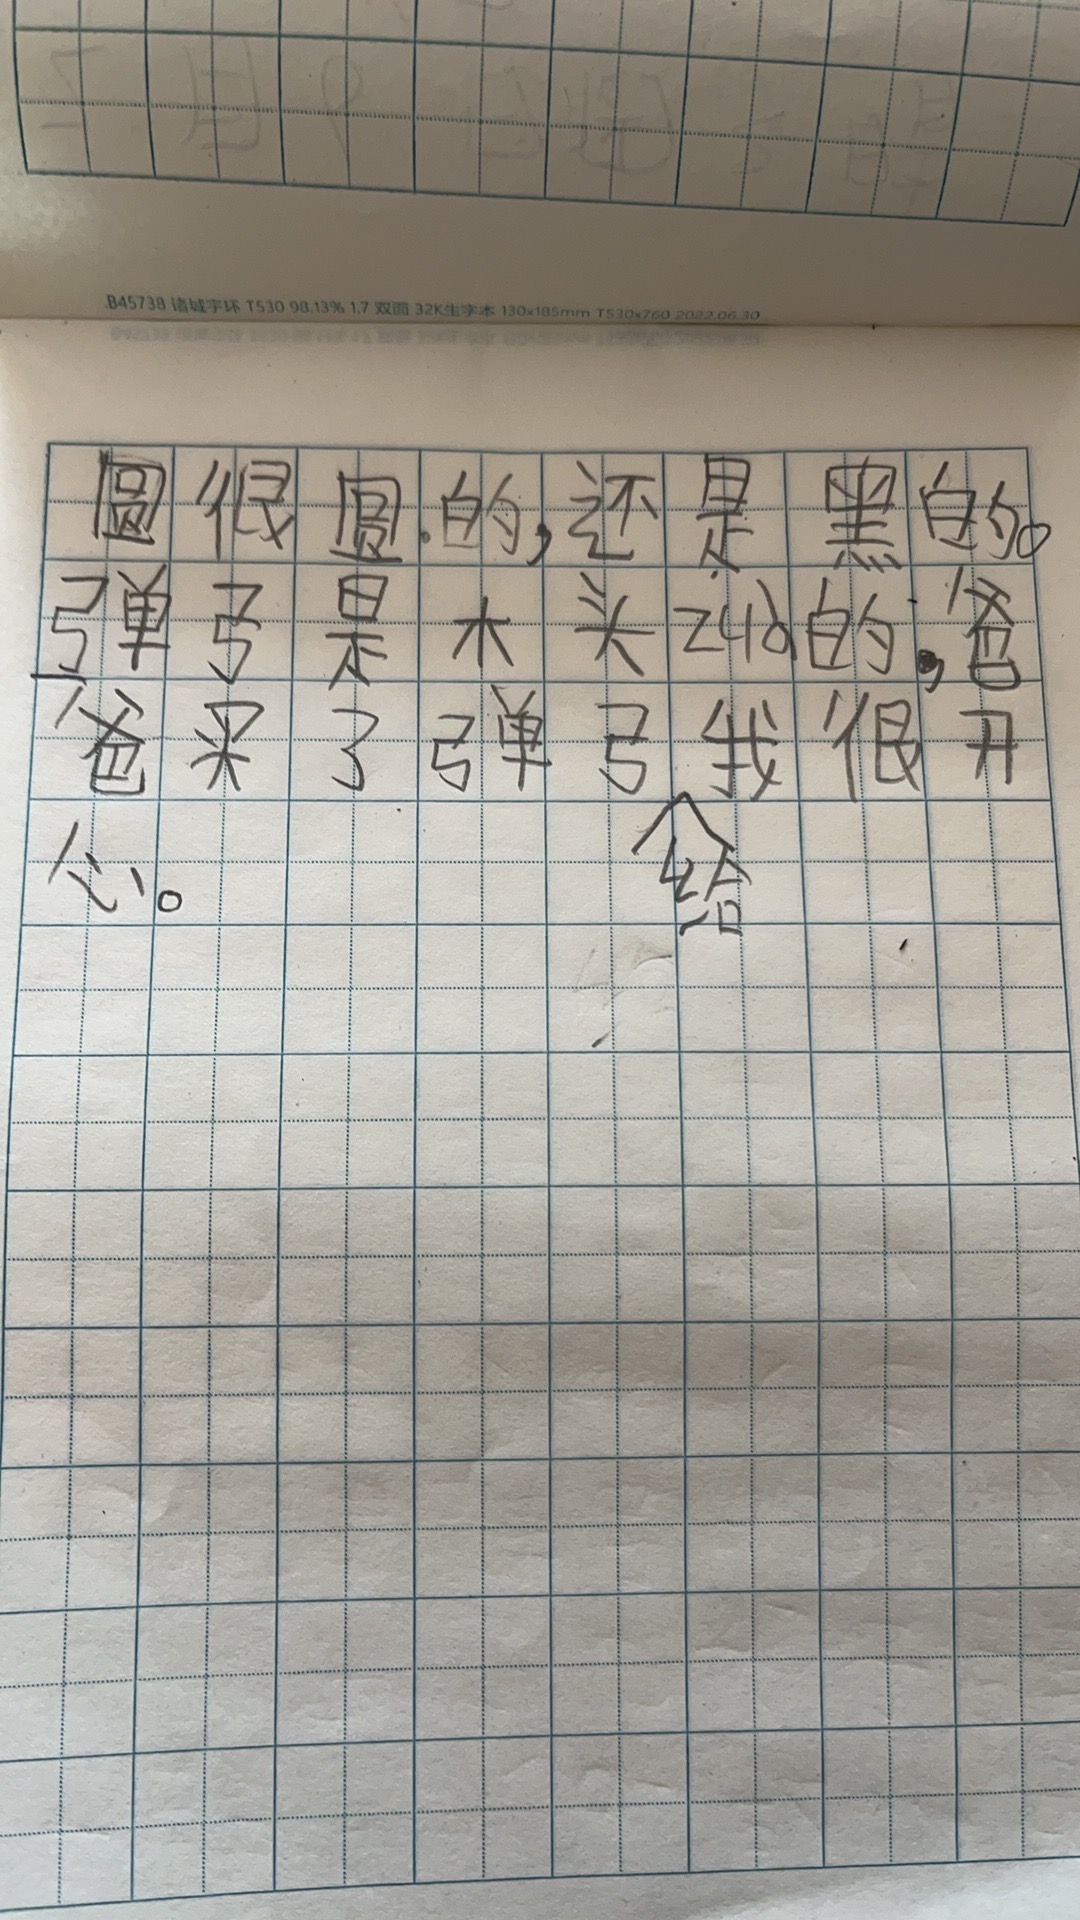 B45738 诸城字环 T530 98.13% 1.7 双面 32K生字本 130×185mm T530x760 2022.06.30
圆很圆的,还是黑的。
弹弓是木头zuò的,爸
爸来了弹弓我很开
给
心。